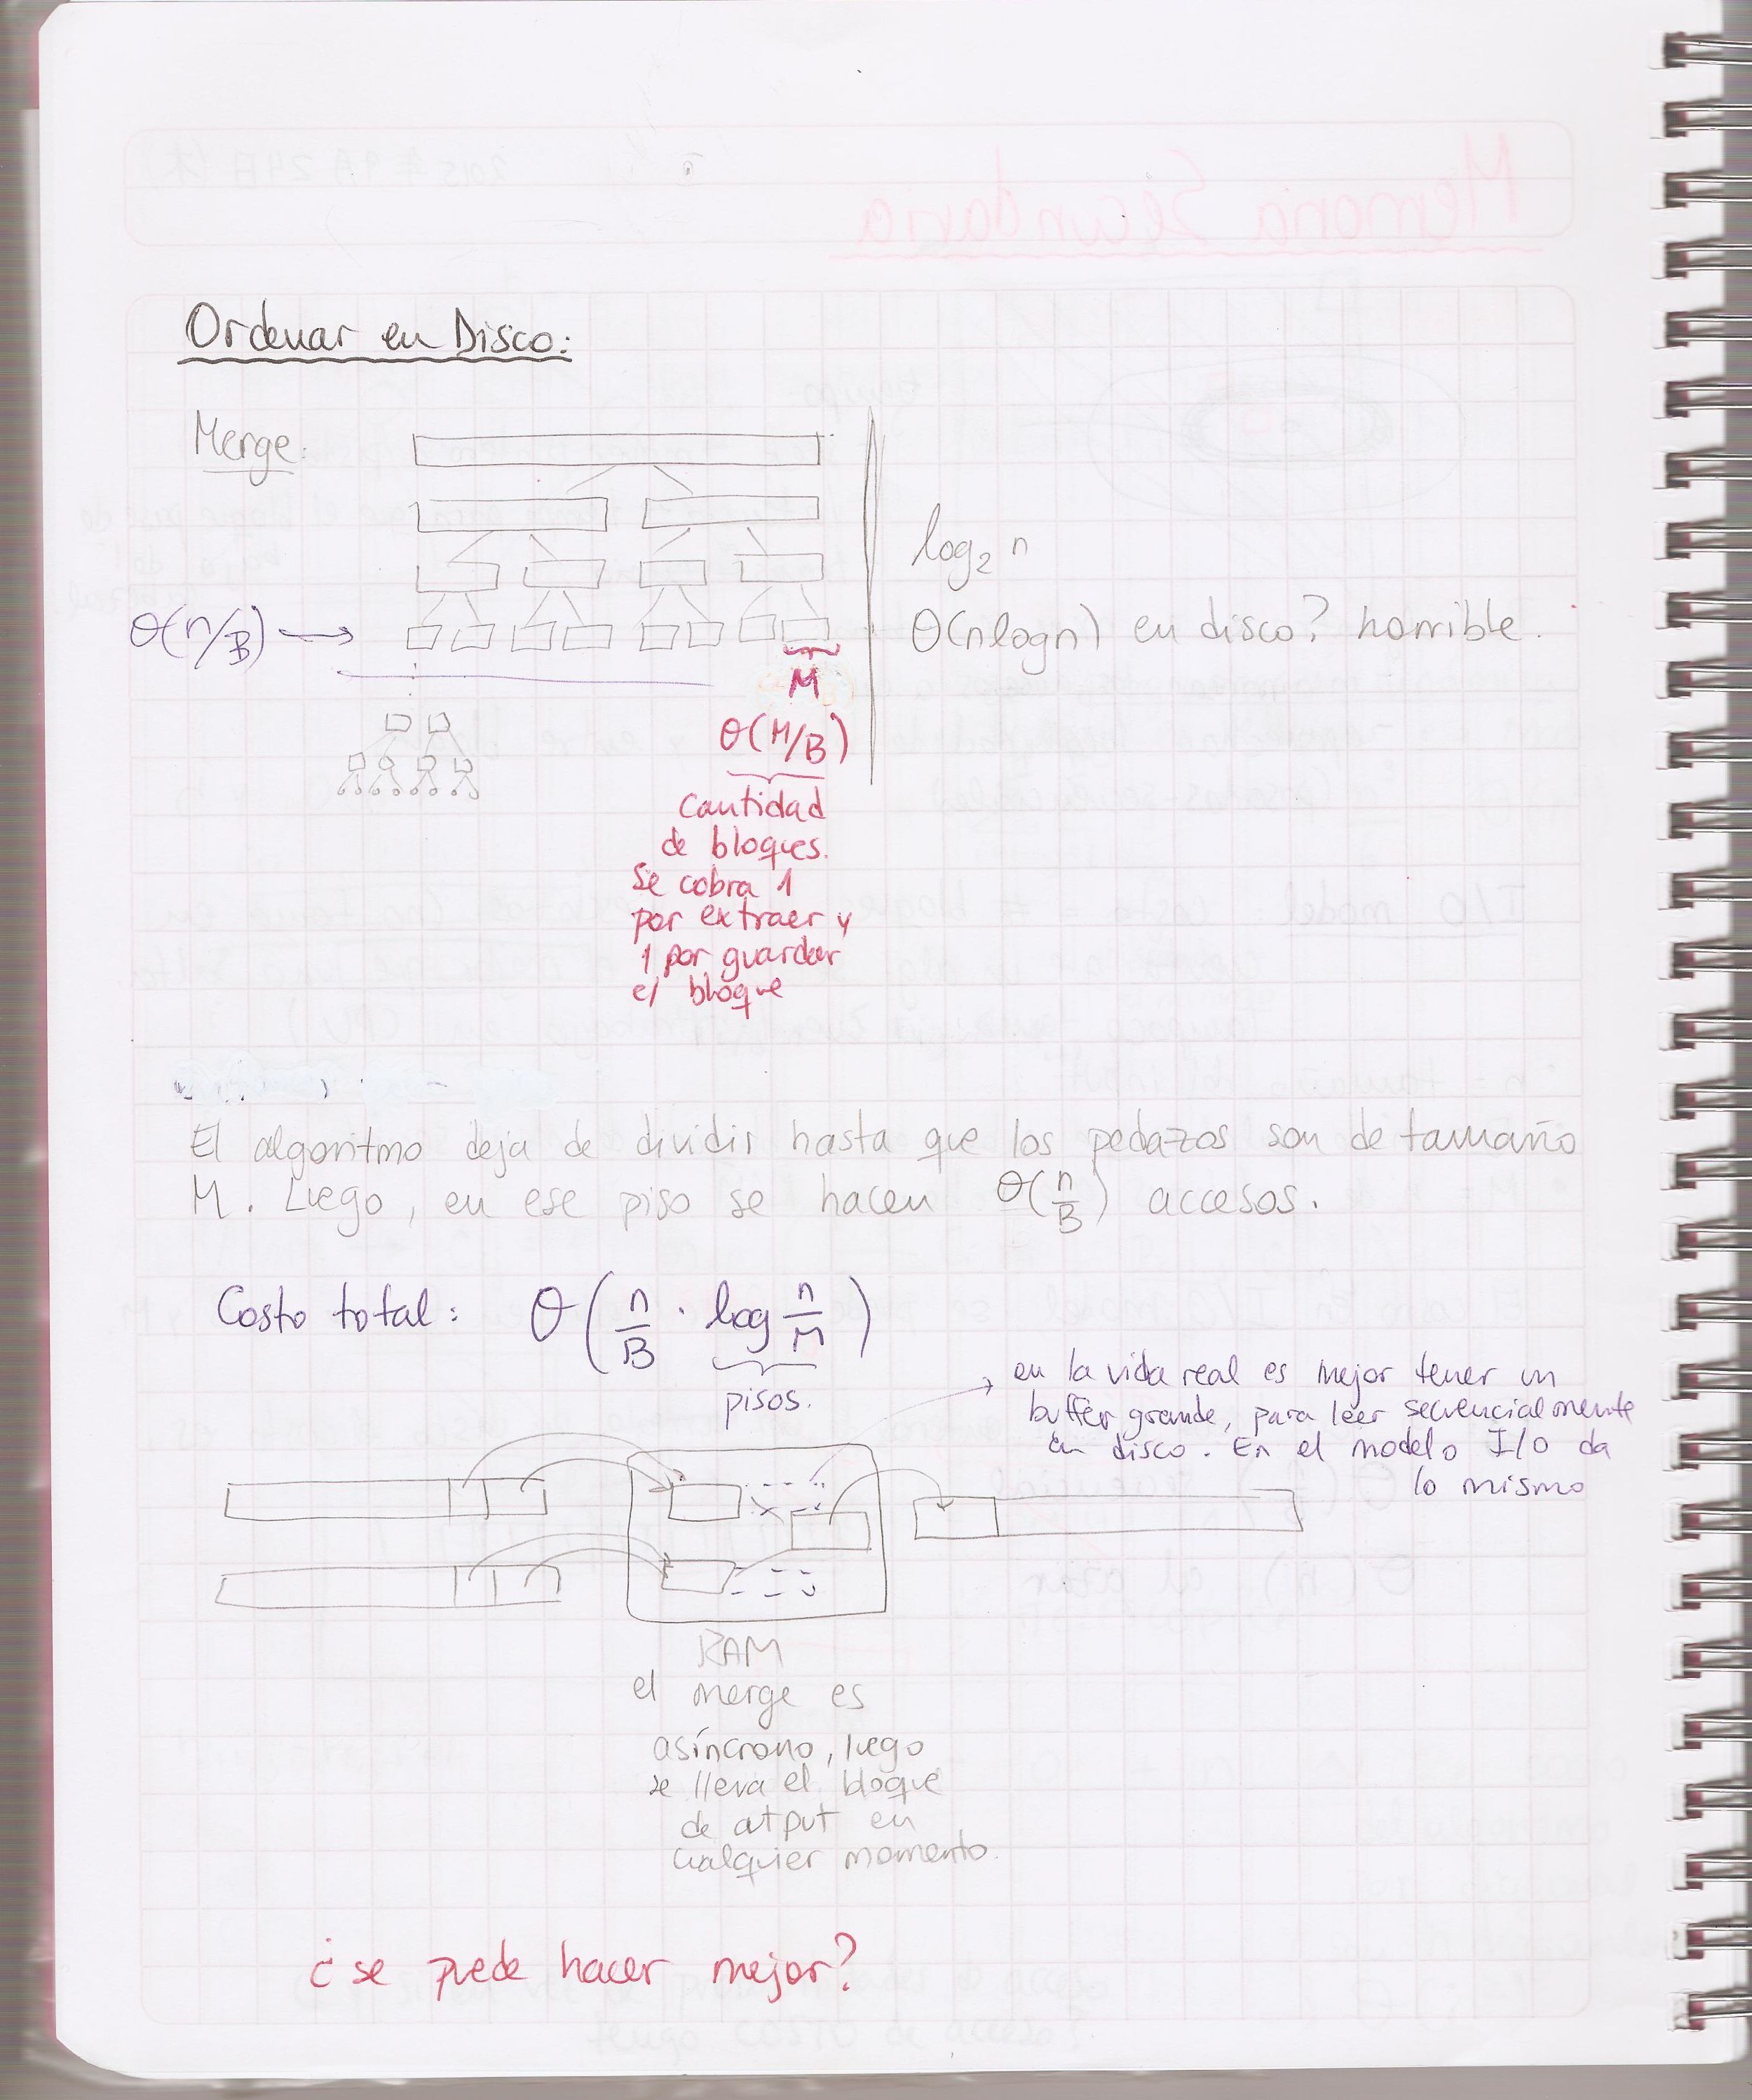 Ordenar en Disco:
Merge:
log₂ n
Θ(n/B) →
Θ(nlogn) en disco? horrible.
M
Θ(M/B)
Cantidad
de bloques.
Se cobra 1
por extraer y
1 por guardar
el bloque
El algoritmo deja de dividir hasta que los pedazos son de tamaño
M. Luego, en ese piso se hacen Θ(n/B) accesos.
Costo total: Θ(n/B · log n/M)
pisos.
en la vida real es mejor tener un
buffer grande, para leer secuencialmente
en disco. En el modelo I/O da
lo mismo
RAM
el merge es
asíncrono, luego
se lleva el bloque
de output en
cualquier momento.
¿se puede hacer mejor?